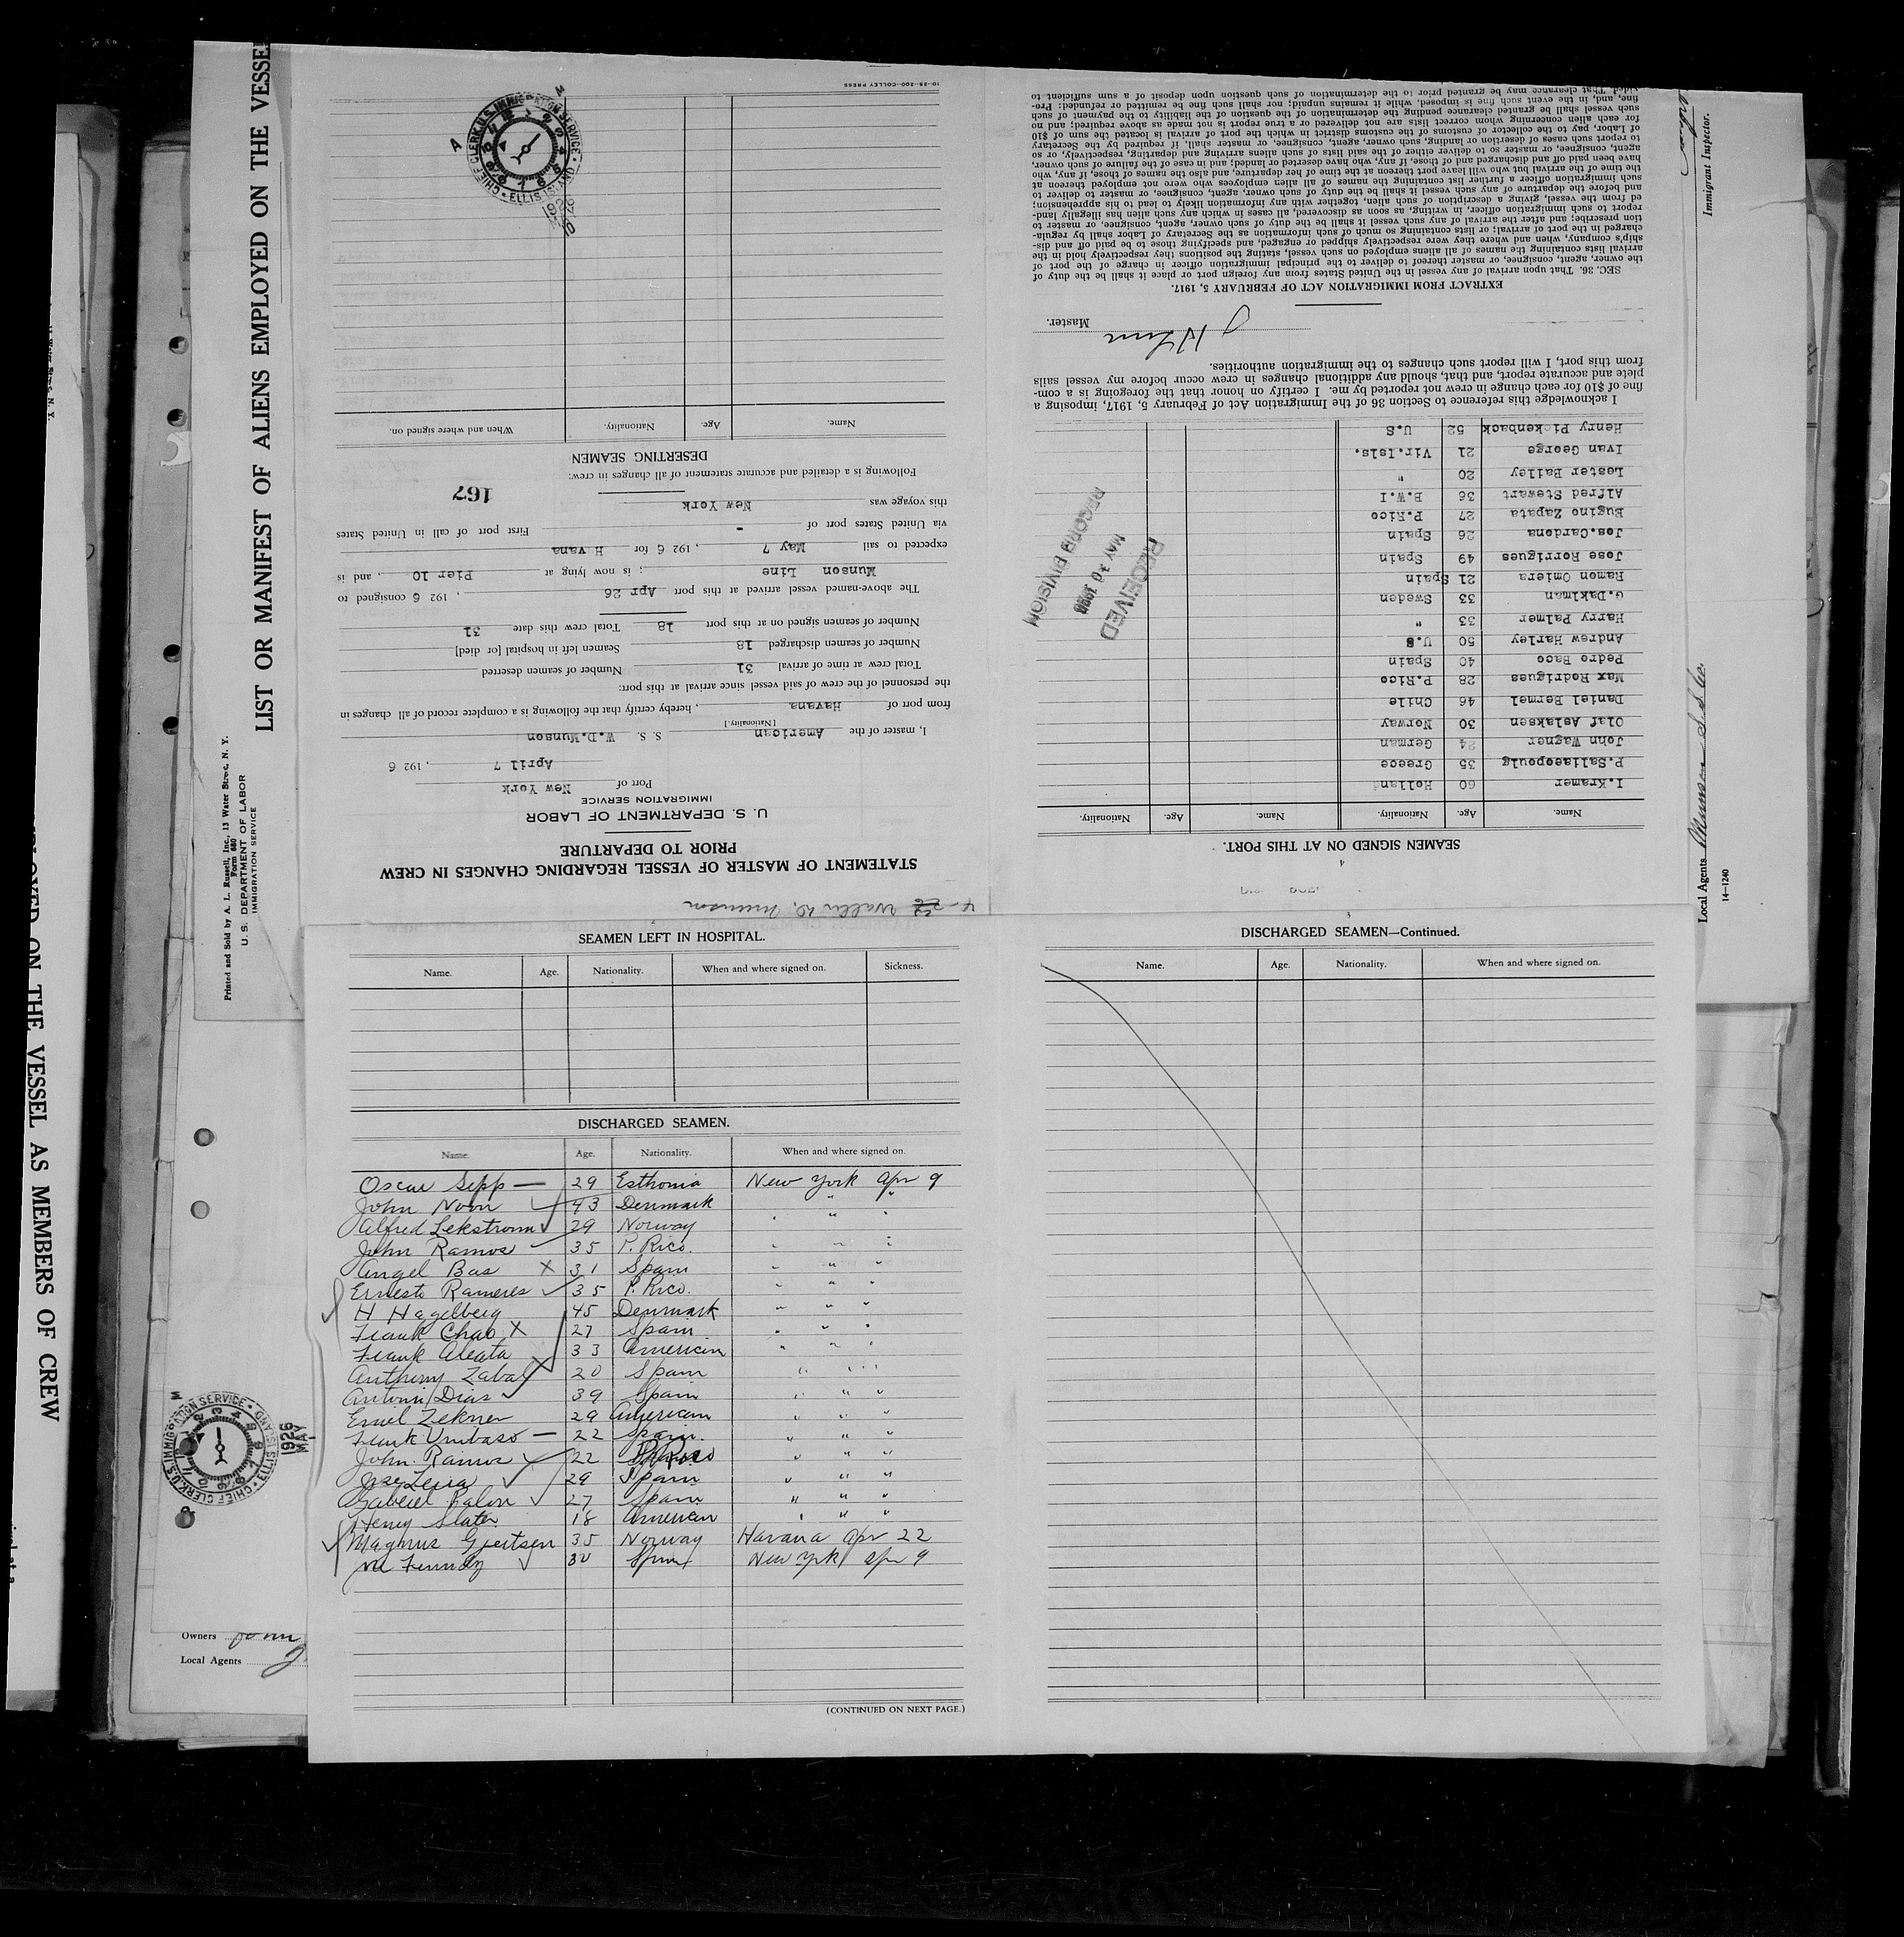 LIST OR MANIFEST OF ALIENS EMPLOYED ON THE VESSEL
Printed and Sold by A. L. Russell, Inc., 13 Water Street, N. Y.
Form 680
U. S. DEPARTMENT OF LABOR
IMMIGRATION SERVICE
ON THE VESSEL AS MEMBERS OF CREW
Owners
Local Agents
CHIEF CLERK U.S. IMMIGRATION SERVICE · ELLIS ISLAND
1926
MAY
4- Walter D. Munson
STATEMENT OF MASTER OF VESSEL REGARDING CHANGES IN CREW
PRIOR TO DEPARTURE
U. S. DEPARTMENT OF LABOR
IMMIGRATION SERVICE
Port of New York
April 7, 192 6
I, master of the American S. S. W.D.Munson
[Nationality.]
from port of Havana, hereby certify that the following is a complete record of all changes in
the personnel of the crew of said vessel since arrival at this port:
Total crew at time of arrival 31 Number of seamen deserted
Number of seamen discharged 18 Seamen left in hospital [or died]
Number of seamen signed on at this port 18 Total crew this date 31
The above-named vessel arrived at this port Apr 26, 192 6 consigned to
Munson Line; is now lying at Pier 10, and is
expected to sail May 7, 192 6 for H vana
via United States port of - First port of call in United States
this voyage was New York
167
Following is a detailed and accurate statement of all changes in crew:
DESERTING SEAMEN
Name. Age. Nationality. When and where signed on.
CHIEF CLERK U.S. IMMIGRATION SERVICE · ELLIS ISLAND
1926
10-25-200-COLLEY PRESS
SEAMEN SIGNED ON AT THIS PORT.
Name. Age. Nationality. Name. Age. Nationality.
I.Kramer 60 Holland
P.Saliaeopoulg 35 Greece
John Wagner 24 German
Olaf Aslaksen 30 Norway
Daniel Bermel 46 Chile
Max Rodrigues 28 P.Rico
Pedro Baco 40 Spain
Andrew Harley 50 U.S
Harry Palmer 33 "
G.Daklman 33 Sweden
Ramon Omiera 21 Spain
Jose Rorrigues 49 Spain
Jos.Cardona 26 Spain
Eugino Zapata 27 P.Rico
Alfred Stewart 36 B.W.I
Lester Bailey 20 "
Ivan George 21 Vir.Isls.
Henry Pickenback 52 U.S
RECEIVED
MAY 30 1926
RECORD DIVISION
I acknowledge this reference to Section 36 of the Immigration Act of February 5, 1917, imposing a
fine of $10 for each change in crew not reported by me. I certify on honor that the foregoing is a com-
plete and accurate report, and that, should any additional changes in crew occur before my vessel sails
from this port, I will report such changes to the immigration authorities.
Master.
EXTRACT FROM IMMIGRATION ACT OF FEBRUARY 5, 1917.
SEC. 36. That upon arrival of any vessel in the United States from any foreign port or place it shall be the duty of
the owner, agent, consignee, or master thereof to deliver to the principal immigration officer in charge of the port of
arrival lists containing the names of all aliens employed on such vessel, stating the positions they respectively hold in the
ship's company, when and where they were respectively shipped or engaged, and specifying those to be paid off and dis-
charged in the port of arrival; or lists containing so much of such information as the Secretary of Labor shall by regula-
tion prescribe; and after the arrival of any such vessel it shall be the duty of such owner, agent, consignee, or master to
report to such immigration officer, in writing, as soon as discovered, all cases in which any such alien has illegally land-
ed from the vessel, giving a description of such alien, together with any information likely to lead to his apprehension;
and before the departure of any such vessel it shall be the duty of such owner, agent, consignee, or master to deliver to
such immigration officer a further list containing the names of all alien employees who were not employed thereon at
the time of the arrival but who will leave port thereon at the time of her departure, and also the names of those, if any, who
have been paid off and discharged and of those, if any, who have deserted or landed; and in case of the failure of such owner,
agent, consignee, or master so to deliver either of the said lists of such aliens arriving and departing, respectively, or so
to report such cases of desertion or landing, such owner, agent, consignee, or master shall, if required by the Secretary
of Labor, pay to the collector of customs of the customs district in which the port of arrival is located the sum of $10
for each alien concerning whom correct lists are not delivered or a true report is not made as above required; and no
such vessel shall be granted clearance pending the determination of the question of the liability to the payment of such
fine, and, in the event such fine is imposed, while it remains unpaid; nor shall such fine be remitted or refunded: Pro-
vided That clearance may be granted prior to the determination of such question upon deposit of a sum sufficient to
Immigrant Inspector.
Local Agents Munson S.S. Co.
14-1240
SEAMEN LEFT IN HOSPITAL.
Name. Age. Nationality. When and where signed on. Sickness.
DISCHARGED SEAMEN.
Name. Age. Nationality. When and where signed on.
Oscar Sepp — 29 Esthonia New York Apr 9
John Noon 43 Denmark " "
Alfred Lekstrom 29 Norway " " "
John Ramos 35 P. Rico. " " "
Angel Bas X 31 Spain " " "
Ernesto Rameres 35 P. Rico. " " "
H Hagelberg 45 Denmark " " "
Frank Chao X 27 Spain " " "
Frank Aleata 33 American " " "
Anthony Zabal 20 Spain " " "
Antoni Dias 39 Spain " " "
Emel Zekner 29 American " " "
Frank Umbaso — 22 Spain. " " "
John Ramos 22 P. Rico " " "
Jose Zeria 29 Spain " " "
Gabriel Palon 27 Spain " " "
Henry Slater 18 American " " "
Magnus Gjertsen 35 Norway Havana Apr 22
30 Spain New York Apr 9
(CONTINUED ON NEXT PAGE.)
3
DISCHARGED SEAMEN—Continued.
Name. Age. Nationality. When and where signed on.